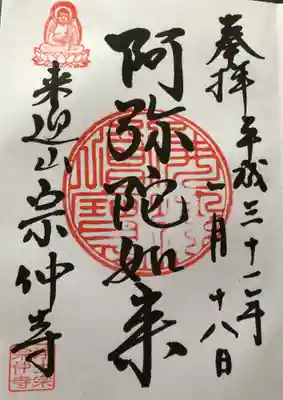 奉拝
平成三十一年
一月十八日
阿弥陀如来
来迎山
宗仲寺